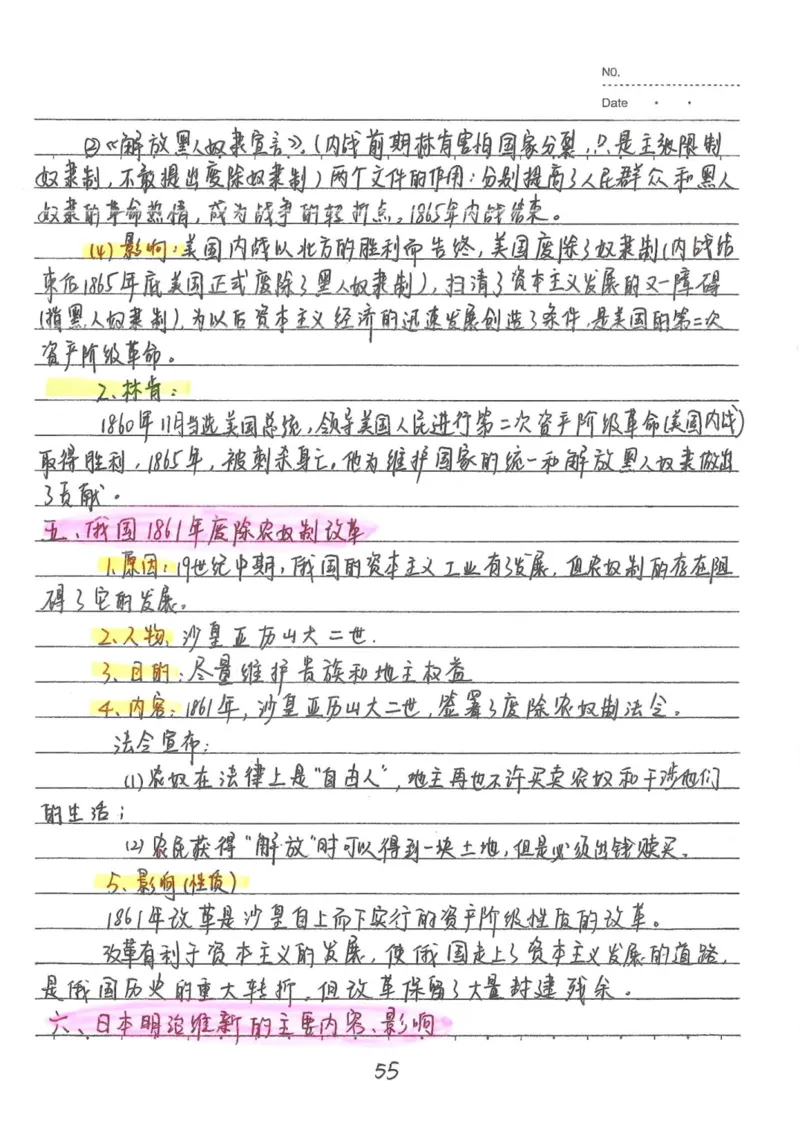 NO.
Date
②《解放黑人奴隶宣言》。(内战前期林肯害怕国家分裂,只是主张限制
奴隶制,不敢提出废除奴隶制)两个文件的作用:分别提高了人民群众和黑人
奴隶的革命热情,成为战争的转折点。1865年内战结束。
(4)影响:美国内战以北方的胜利而告终,美国废除了奴隶制(内战结
束后1865年底美国正式废除了黑人奴隶制),扫清了资本主义发展的又一障碍
(指黑人奴隶制),为以后资本主义经济的迅速发展创造了条件,是美国的第二次
资产阶级革命。
2、林肯:
1860年11月当选美国总统,领导美国人民进行第二次资产阶级革命(美国内战)
取得胜利,1865年,被刺杀身亡。他为维护国家的统一和解放黑人奴隶做出
了贡献。
五、俄国1861年废除农奴制改革
1、原因:19世纪中期,俄国的资本主义工业有了发展,但农奴制的存在阻
碍了它的发展。
2、人物:沙皇亚历山大二世.
3、目的:尽量维护贵族和地主权益
4、内容:1861年,沙皇亚历山大二世,签署了废除农奴制法令。
法令宣布:
(1)农奴在法律上是"自由人",地主再也不许买卖农奴和干涉他们
的生活;
(2)农民获得"解放"时可以得到一块土地,但是必须出钱赎买。
5、影响(性质)
1861年改革是沙皇自上而下实行的资产阶级性质的改革。
改革有利于资本主义的发展,使俄国走上了资本主义发展的道路,
是俄国历史的重大转折,但改革保留了大量封建残余。
六、日本明治维新的主要内容、影响
55